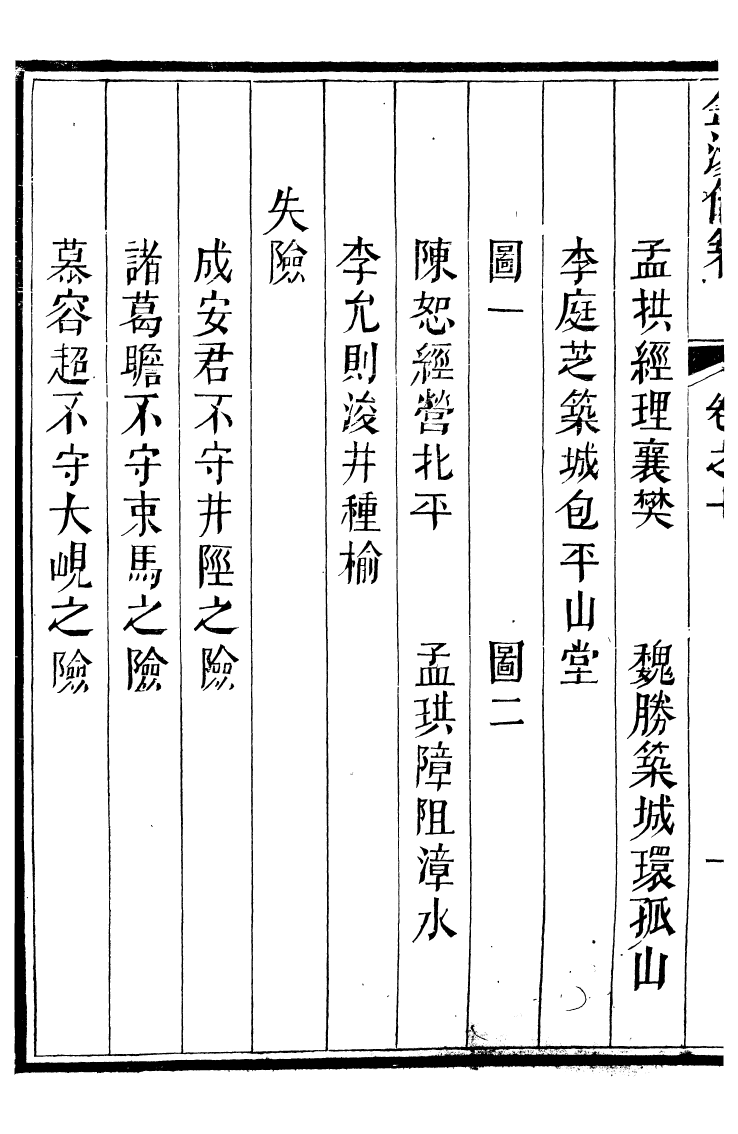 孟拱經理襄樊　魏勝築城環孤山
李庭芝築城包平山堂
圖一　圖二
陳恕經營北平　孟珙障阻漳水
李允則浚井種榆
失險
成安君不守井陘之險
諸葛瞻不守束馬之險
慕容超不守大峴之險